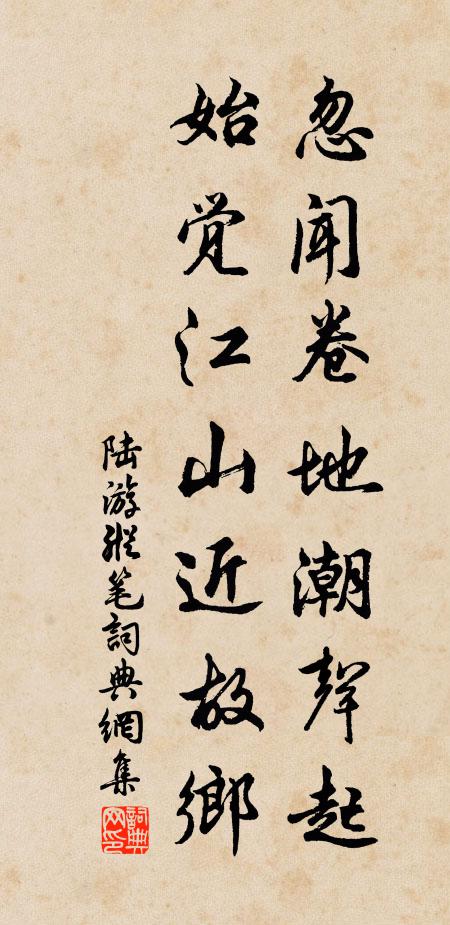 忽闻卷地潮声起
始觉江山近故乡
陆游纵笔词典网集
词典网印